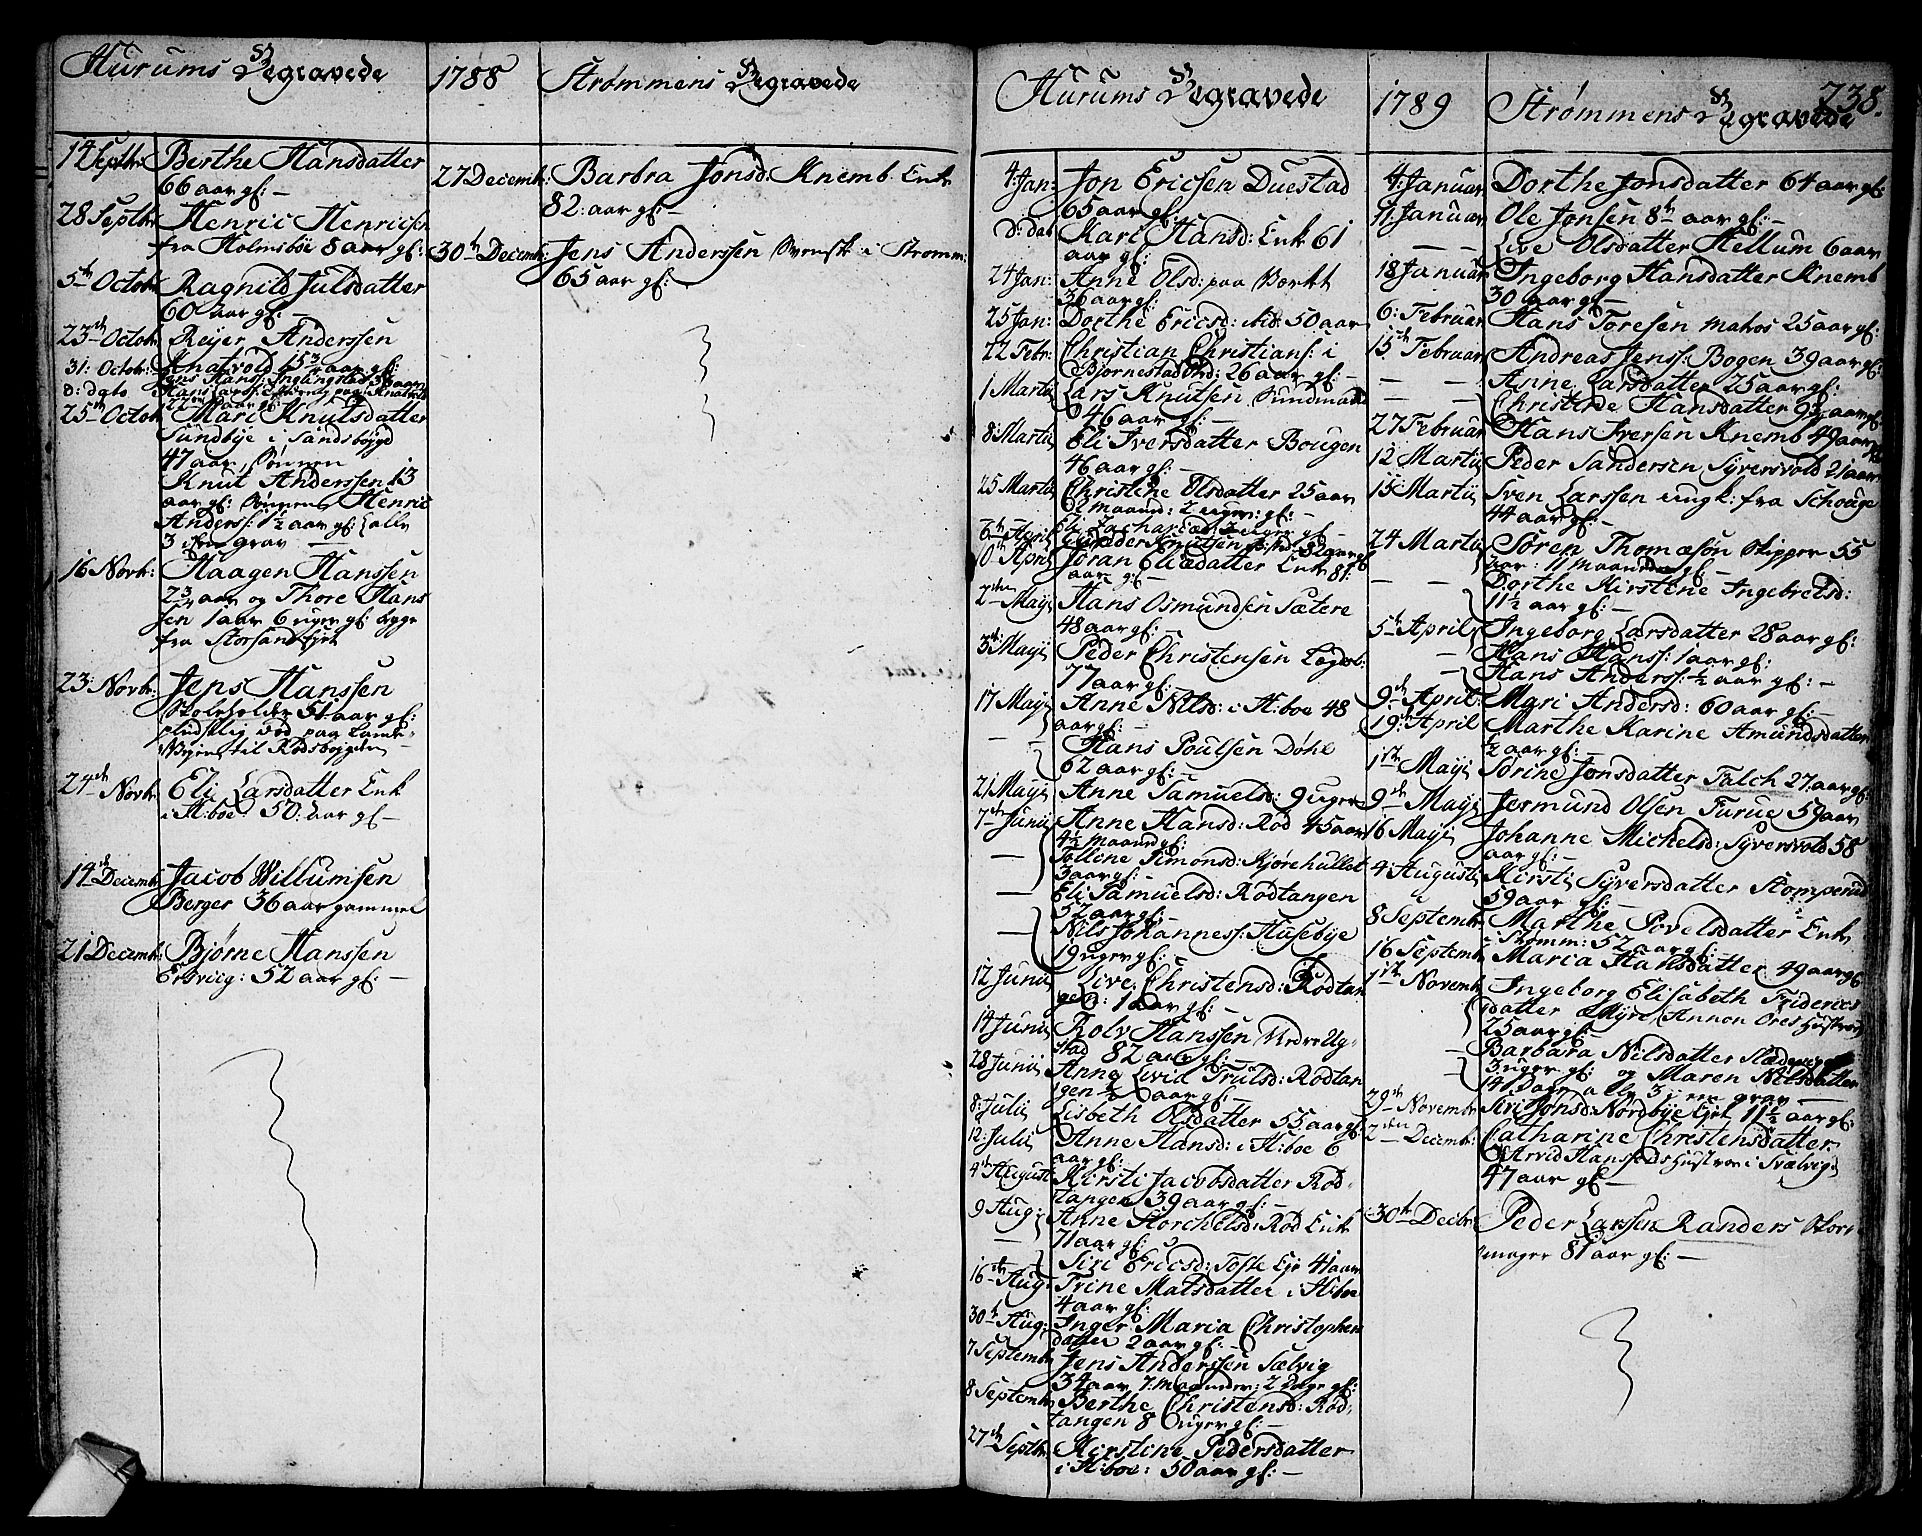 Hurums Begravede
14 Septbr: Berthe Hansdatter
66 aar gl: —
28 Septbr: Henric Henricsen
fra Holmsboe 8 aar gl:
5th Octobr: Ragnild Julsdatter
60 aar gl: —
23de Octobr: Reyer Anderssen
Knatvold 15 3/4 aar gl:
31: Octobr:
d: dato
25th Octobr: Mari Knutsdatter
Sundbye i Sandsbøygd
47 aar, Sønnen
Knut Anderssen 13
aar gl: Sønnen Henric
Anderss: 1½ aar gl: alle
3 i en grav —
16 Novbr: Haagen Hanssen
2¾ aar og Thore Hans
sen 1 aar 6 uger gl: begge
fra Storsand
23: Novbr: Jens Hanssen
Skoleholder 51 aar gl:
til Rødsbøygden —
24de Novbr: Eli Larsdatter Enk
i H:boe 50: aar gl —
14de Decembr: Jacob Willumsen
Berger 36 aar gammel
21 Decembr: Bjørne Hanssen
Ersviig: 52 aar gl: —
1788 Strømmens Begravede
27 Decembr: Barbra Jonsd: Knemb Enk
82: aar gl: —
30th Decembr: Jens Anderssen Svensk i Strømm:
65 aar gl:
Hurums Begravede
4: Jan: Jon Ericsen Duestad
65 aar gl:
d: dat Kari Hansd: Enk 61
aar gl: —
24 Jan: Anne Olsd: paa
36 aar gl:
25 Jan: Dorthe Ericsd: ibid: 50 aar
22 Febr: Christian Christians: i
Bjørnestad 26 aar gl: —
1 Martii Lars Knutsen
46 aar gl: —
8: Martii Eli Iversdatter Bougen
46 aar gl: —
25 Martii Christine Olsdatter 25 aar
April
April Jøran Eliædatter Enk 81:
aar gl —
2den Maji Hans Osmundsen Sætere
48 aar gl: —
3de Maji Peder Christensen
77 aar gl:
17 Maji Anne Nilsd: i H:boe 48
aar gl: —
— Hans Poulsen Døhl
62 aar gl:
21 Maji Anne Samuelsd: 9 uger
7de Junii Anne Hansd: Rød 45 aar
4½ maaned gl:
— Tollene Simonsd: Kjørehullet
3 aar gl:
— Eli Samuelsd: Rødtangen
52 aar gl:
— Nils Johanness: Husebye
19 uger gl: —
12 Junii Live Christensd: Rødtan
gen: 1 aar gl: —
14 Junii Rolv Hanssen Nedre Ug-
stad 82 aar gl: —
28 Junii Anne Livid Trulsd: Rødtan
gen ½ aar gl: —
8: Julii Lisbeth Olsdatter 55 aar gl:
12: Julii Anne Hansd: i H:boe 6
aar gl: —
4th Augusti Kirsti Jacobsdatter Rød-
tangen 39 aar gl: —
9 Aug: Anne Torchelsd: Rød Enk
71 aar gl: —
— Siri Ericsd: Tofte Eje 41 aar
16de Aug: Trine Matsdatter i H:boe
4 aar gl:
30th Aug: Inger Maria Christophers
datter 2 aar gl: —
7 Septembr Jens Anderssen Sælvig
34 aar 7. maaneder: 2 dage gl:
8 Septembr Berthe Christensd: Rød-
tangen 8 uger gl: —
27de Septbr: Kirstine Pedersdatter
i H:boe: 50 aar gl: —
1789 Strømmens Begravede
238.
4. Januar Dorthe Jonsdatter 64 aar gl:
11 Januar Ole Jonsen 8 aar gl: —
— — Live Olsdatter Hellum 6 aar
18 Januar Ingeborg Hansdatter Knemb
30 aar gl —
6: Februar Hans Toresen 25 aar gl:
15th Februar Andreas Jenss: Bogen 39 aar gl:
— — Anne Larsdatter 25 aar gl:
— — Christine Hansdatter
27 Februar Hans Iversen Knemb 49 aar
12 Martii Peder Sandersen Syversvold 21 aar
15 Martii Sven Larssen ungk: fra Schouge
44 aar gl: —
24 Martii Søren Thomæsøn Skipper 55
aar: 11 maaneder gl: —
— — Dorthe Kirstene Ingebretsd:
11½ aar gl: —
5th April Ingeborg Larsdatter 28 aar gl:
— Hans Hanss: 1 aar gl:
— Hans Anderss: ½ aar gl: —
9th April: Mari Andersd: 60 aar gl: —
19: April Marthe Karine Amundsdatter
½ aar gl: —
1ste Maji Sørine Jonsdatter Falch 27 aar gl:
9th Maji Jermund Olsen Turue 59 aar
16 Maji Johanne Michelsd: Syversvold 58
aar gl: —
4: Augusti Kirsti Syversdatter Stomperud
59 aar gl: —
8 Septembr Marthe Povelsdatter Enk
i Strømm: 52 aar gl:
16 Septembr Maria Hansdatter 49 aar gl
1ste Novembr Ingeborg Elisabeth Friderics
datter Annon Ores Hustroe
25 aar gl:
— Barbara Nilsdatter
3 uger gl: og Maren Nilsdatter
14 Dage alle 3 i en grav —
29th Novembr Siri Jonsd: Nordbye Eje 11½ aar gl:
2den Decembr: Catharine Christensdatter
Arvid Hanssens Hustroe i Svælvig
47 aar gl —
30th Decbr: Peder Larssen Randers
81 aar gl: —